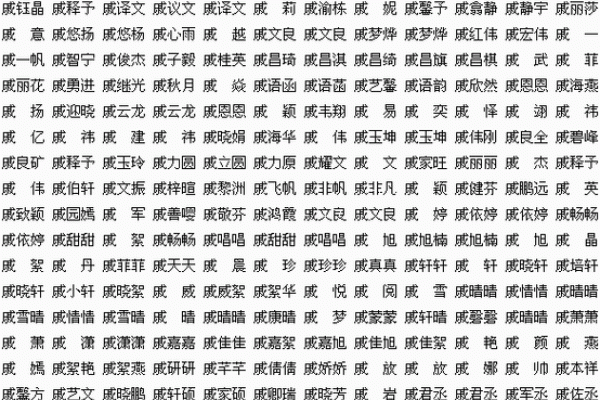 戚钰晶 戚释子 戚译文 戚议文 戚译文 戚 莉 戚渝栋 戚 妮 戚馨予 戚翁静 戚静宇 戚丽莎
戚 意 戚悠扬 戚悠杨 戚心雨 戚 越 戚文良 戚文良 戚梦烨 戚梦烨 戚红伟 戚宏伟 戚 一
戚一帆 戚智宁 戚俊杰 戚子毅 戚桂英 戚昌琦 戚昌淇 戚昌绮 戚昌旗 戚昌棋 戚 武 戚 菲
戚丽花 戚勇进 戚继光 戚秋月 戚 汤 戚语函 戚语菡 戚艺馨 戚语韵 戚欣然 戚恩恩 戚海燕
戚 扬 戚迎晓 戚云龙 戚云龙 戚恩恩 戚 颖 戚韦翔 戚 易 戚 奕 戚 怿 戚 翊 戚 祎
戚 亿 戚 祎 戚 建 戚 祎 戚晓娟 戚海华 戚 伟 戚玉坤 戚玉坤 戚伟刚 戚良全 戚碧峰
戚良矿 戚释予 戚玉玲 戚力圆 戚立圆 戚力原 戚耀文 戚 文 戚家旺 戚丽丽 戚 杰 戚释子
戚 伟 戚伯轩 戚文振 戚梓暄 戚黎洲 戚飞帆 戚非帆 戚非凡 戚 颖 戚健芬 戚鹏远 戚 英
戚致颖 戚园嫣 戚 军 戚善嘤 戚敬芬 戚鸿霞 戚文良 戚文良 戚 婷 戚依婷 戚依婷 戚畅畅
戚依婷 戚甜甜 戚 絮 戚畅畅 戚唱唱 戚甜甜 戚唱唱 戚 旭 戚旭楠 戚旭楠 戚 旭 戚 晶
戚 絮 戚 丹 戚菲菲 戚天天 戚 晨 戚 珍 戚珍珍 戚真真 戚轩轩 戚 轩 戚晓轩 戚培轩
戚晓轩 戚小轩 戚晓絮 戚 威 戚威絮 戚絮华 戚 悦 戚 阅 戚 雪 戚晴晴 戚情情 戚晴晴
戚雪晴 戚情情 戚雪晴 戚 晴 戚晴晴 戚康晴 戚 梦 戚蒙蒙 戚轩晴 戚磬磬 戚晴晴 戚萧萧
戚 萧 戚 潇 戚潇潇 戚嘉嘉 戚佳佳 戚嘉絮 戚嘉旭 戚佳旭 戚佳絮 戚 艳 戚 颜 戚 燕
戚 嫣 戚絮艳 戚絮燕 戚研研 戚芊芊 戚倩倩 戚娇娇 戚 放 戚 放 戚 娜 戚 帅 戚本祥
戚馨方 戚艺文 戚晓鹏 戚轩硕 戚家硕 戚卿瑞 戚晓芳 戚 岩 戚君丞 戚君丞 戚军丞 戚佐丞